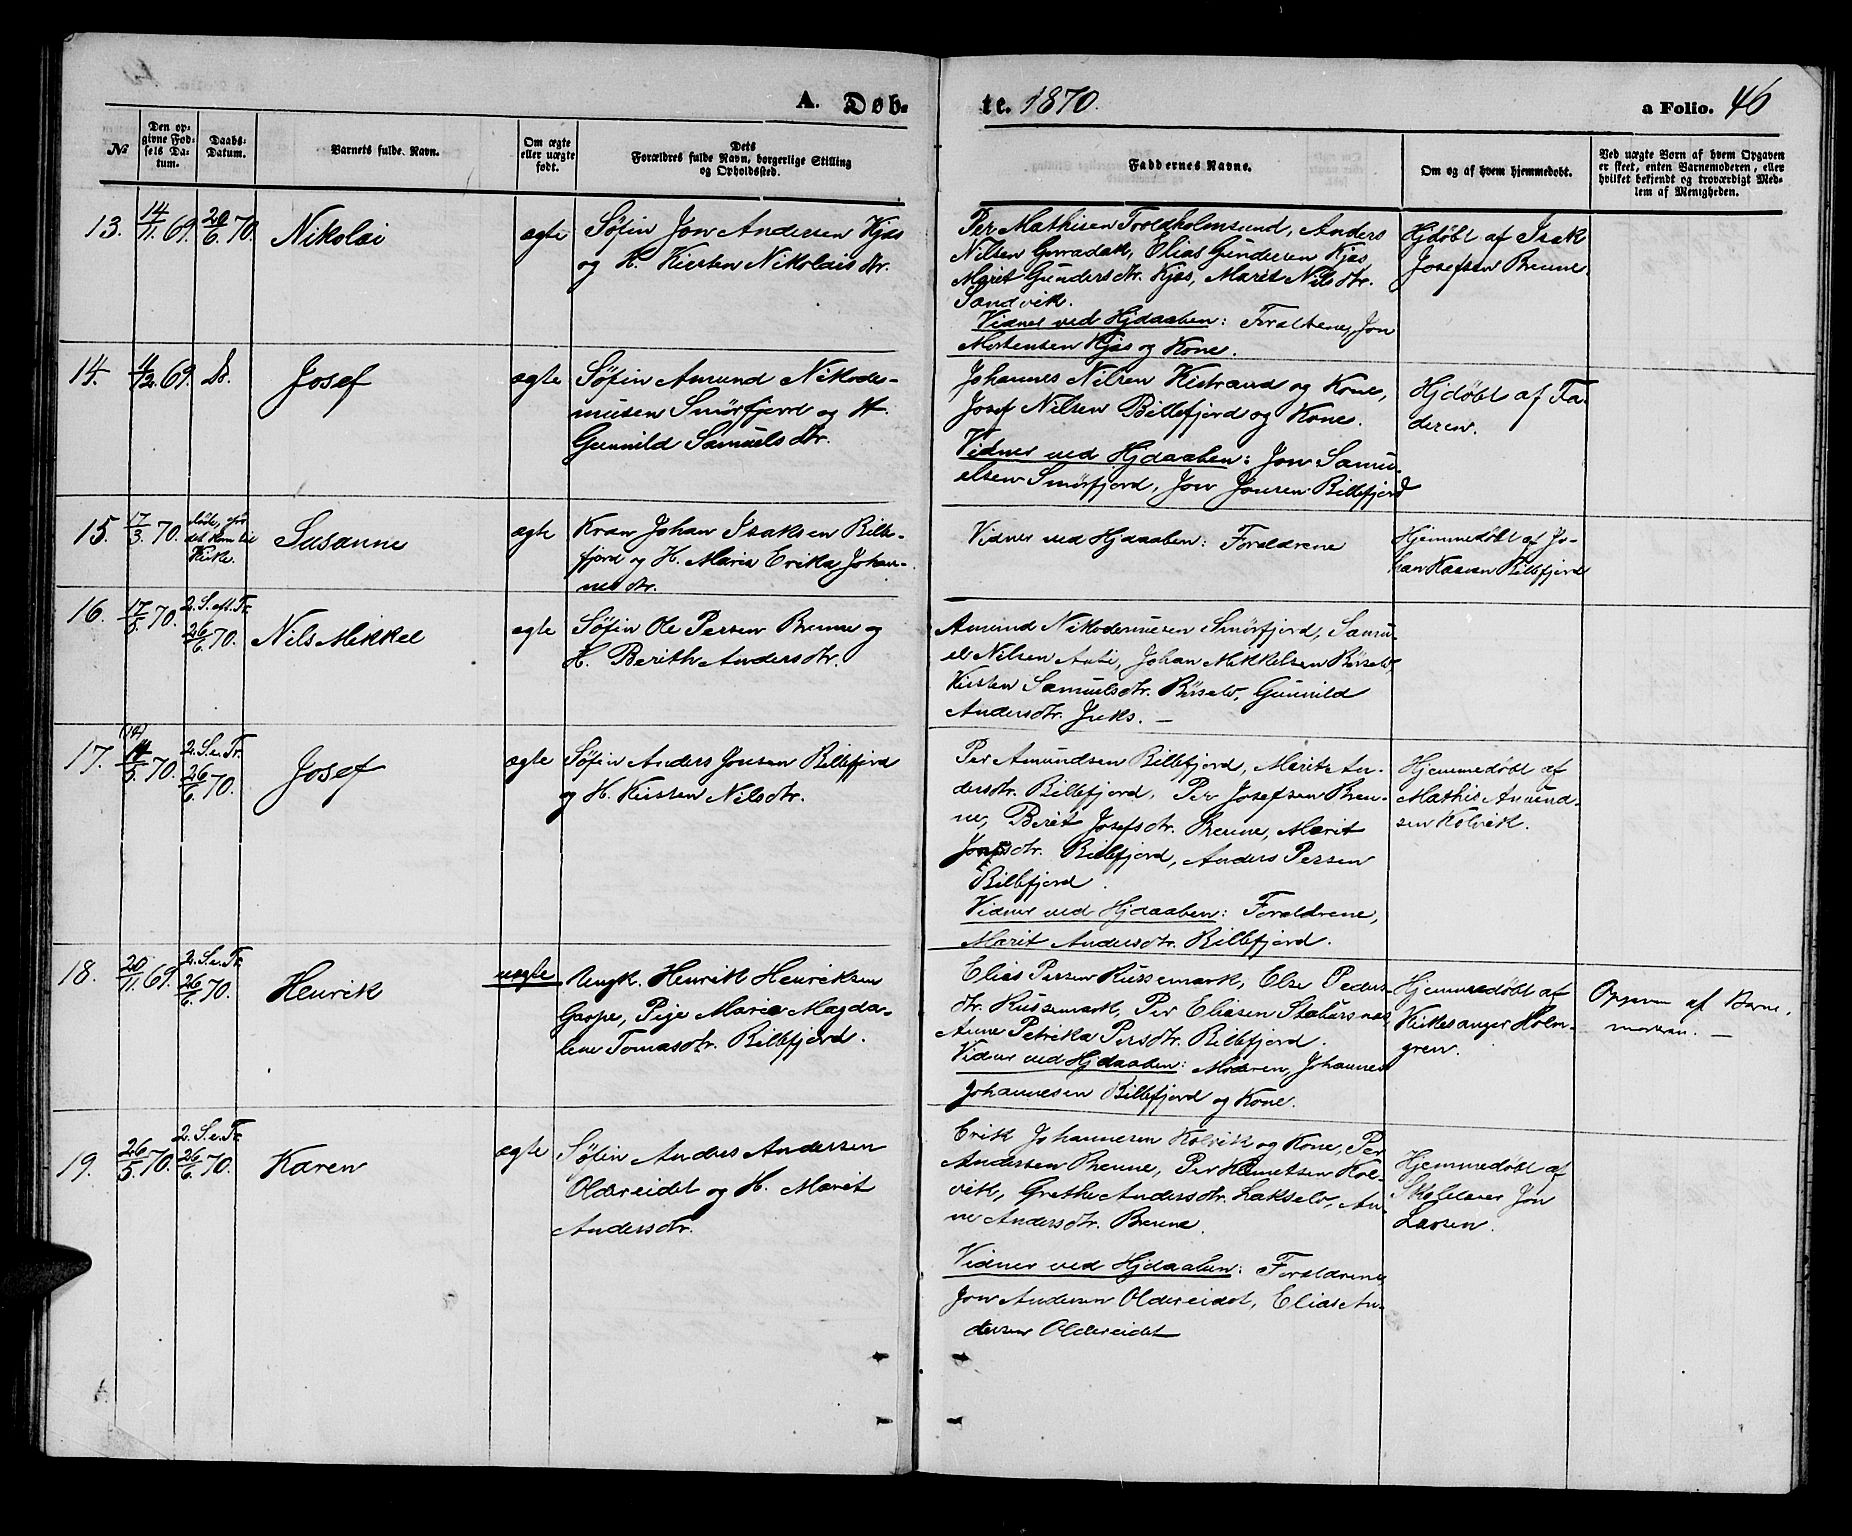 A. Døb-
te. 1870.
a Folio. 46
№
Den op-
givne Fød-
sels Da-
tum.
Daabs-
Datum.
Barnets fulde Navn.
Om ægte
eller uægte
født.
Dets
Forældres fulde Navn, borgerlige Stilling
og Opholdssted.
Faddernes Navne.
Om og af hvem hjemmedøbt.
Ved uægte Børn af hvem Opgaven
er skeet, enten Barnemoderen, eller
hvilket bekjendt og troværdigt Med-
lem af Menigheden.
13. 14/11 69. 26/6 70. Nikolai ægte
Søfin Jon Andersen Kjæs
og H. Kirsten Nikolaisdtr.
Per Mathisen Troldholmsund, Anders
Nilsen Goradak, Elias Gundersen Kjæs,
Marit Gundersdtr. Kjæs, Marit Nilsdtr.
Sandvik.
Vidner ved Hjdaaben: Foraldrene, Jon
Mortensen Kjæs og Kone.
Hjdøbt af Isak
Josefsen Brenne.
14. 4/12 69. Do. Josef ægte
Søfin Amund Nikode-
musen Smørfjord og H.
Gunnild Samuelsdtr.
Johannes Nilsen Kistrand og Kone,
Josef Nilsen Billefjord og Kone.
Vidner ved Hjdaaben: Jon Samu-
elsen Smørfjord, Jon Jonsen Billefjord
Hjdøbt af Fa-
deren.
15. 17/3 70. døde, før
det kom til
Kirke. Susanne ægte
Kvæn Johan Isaksen Bille-
fjord og H. Maria Erika Johan-
nesdtr.
Vidner ved Hjdaaben: Foraldrene
Hjemmedøbt af Jo-
han Kaaven Billefjord
16. 17/5 70. 2. S. eft. Tr.
26/6 70. Nils Mikkel ægte
Søfin Ole Persen Brenne og
H. Berith Andersdtr.
Amund Nikodemusen Smørfjord, Samu-
el Nilsen Auti, Johan Mikkelsen Børselv,
Kirsten Samuelsdtr. Børselv, Gunnild
Andersdtr. Juks. —
17. (14) 14/5 70. 2. S. e. Tr.
26/6 70. Josef ægte
Søfin Anders Jonsen Billefjord
og H. Kirsten Nilsdtr.
Per Amundsen Billefjord, Marit An-
dersdtr. Billefjord, Per Josefsen Bren-
ne, Berit Josefsdtr. Brenne, Marit
Jonsdtr. Billefjord, Anders Persen
Billefjord.
Vidner ved Hjdaaben: Foraldrene,
Marit Andersdtr. Billefjord.
Hjemmedøbt af
Mathis Amund-
sen Kolvik.
18. 20/11 69. 2. S. e. Tr.
26/6 70. Henrik uægte
Ungk. Henrik Henriksen
Garpe, Pige Marie Magda-
lene Tomasdtr. Billefjord.
Elias Persen Russemark, Else Peders-
dtr. Russemark, Per Eliasen Stabursnæs,
Anne Petrika Persdtr. Billefjord.
Vidner ved Hjdaaben: Moderen, Johannes
Johannesen Billefjord og Kone.
Hjemmedøbt af
Kirkesanger Holm-
gren.
Opgaven af Barne-
moderen. —
19. 26/5 70. 2. S. e. Tr.
26/6 70. Karen ægte
Søfin Anders Andersen
Oldereidet og H. Marit
Andersdtr.
Erik Johannesen Kolvik og Kone, Per
Andersen Brenne, Per Klemetsen Kol-
vik, Grethe Andersdtr. Lakselv, An-
ne Andersdtr. Brenne.
Vidner ved Hjdaaben: Foraldrene
Jon Andersen Oldereidet, Elias An-
dersen Oldereidet
Hjemmedøbt af
Skolelærer Jon
Larsen.